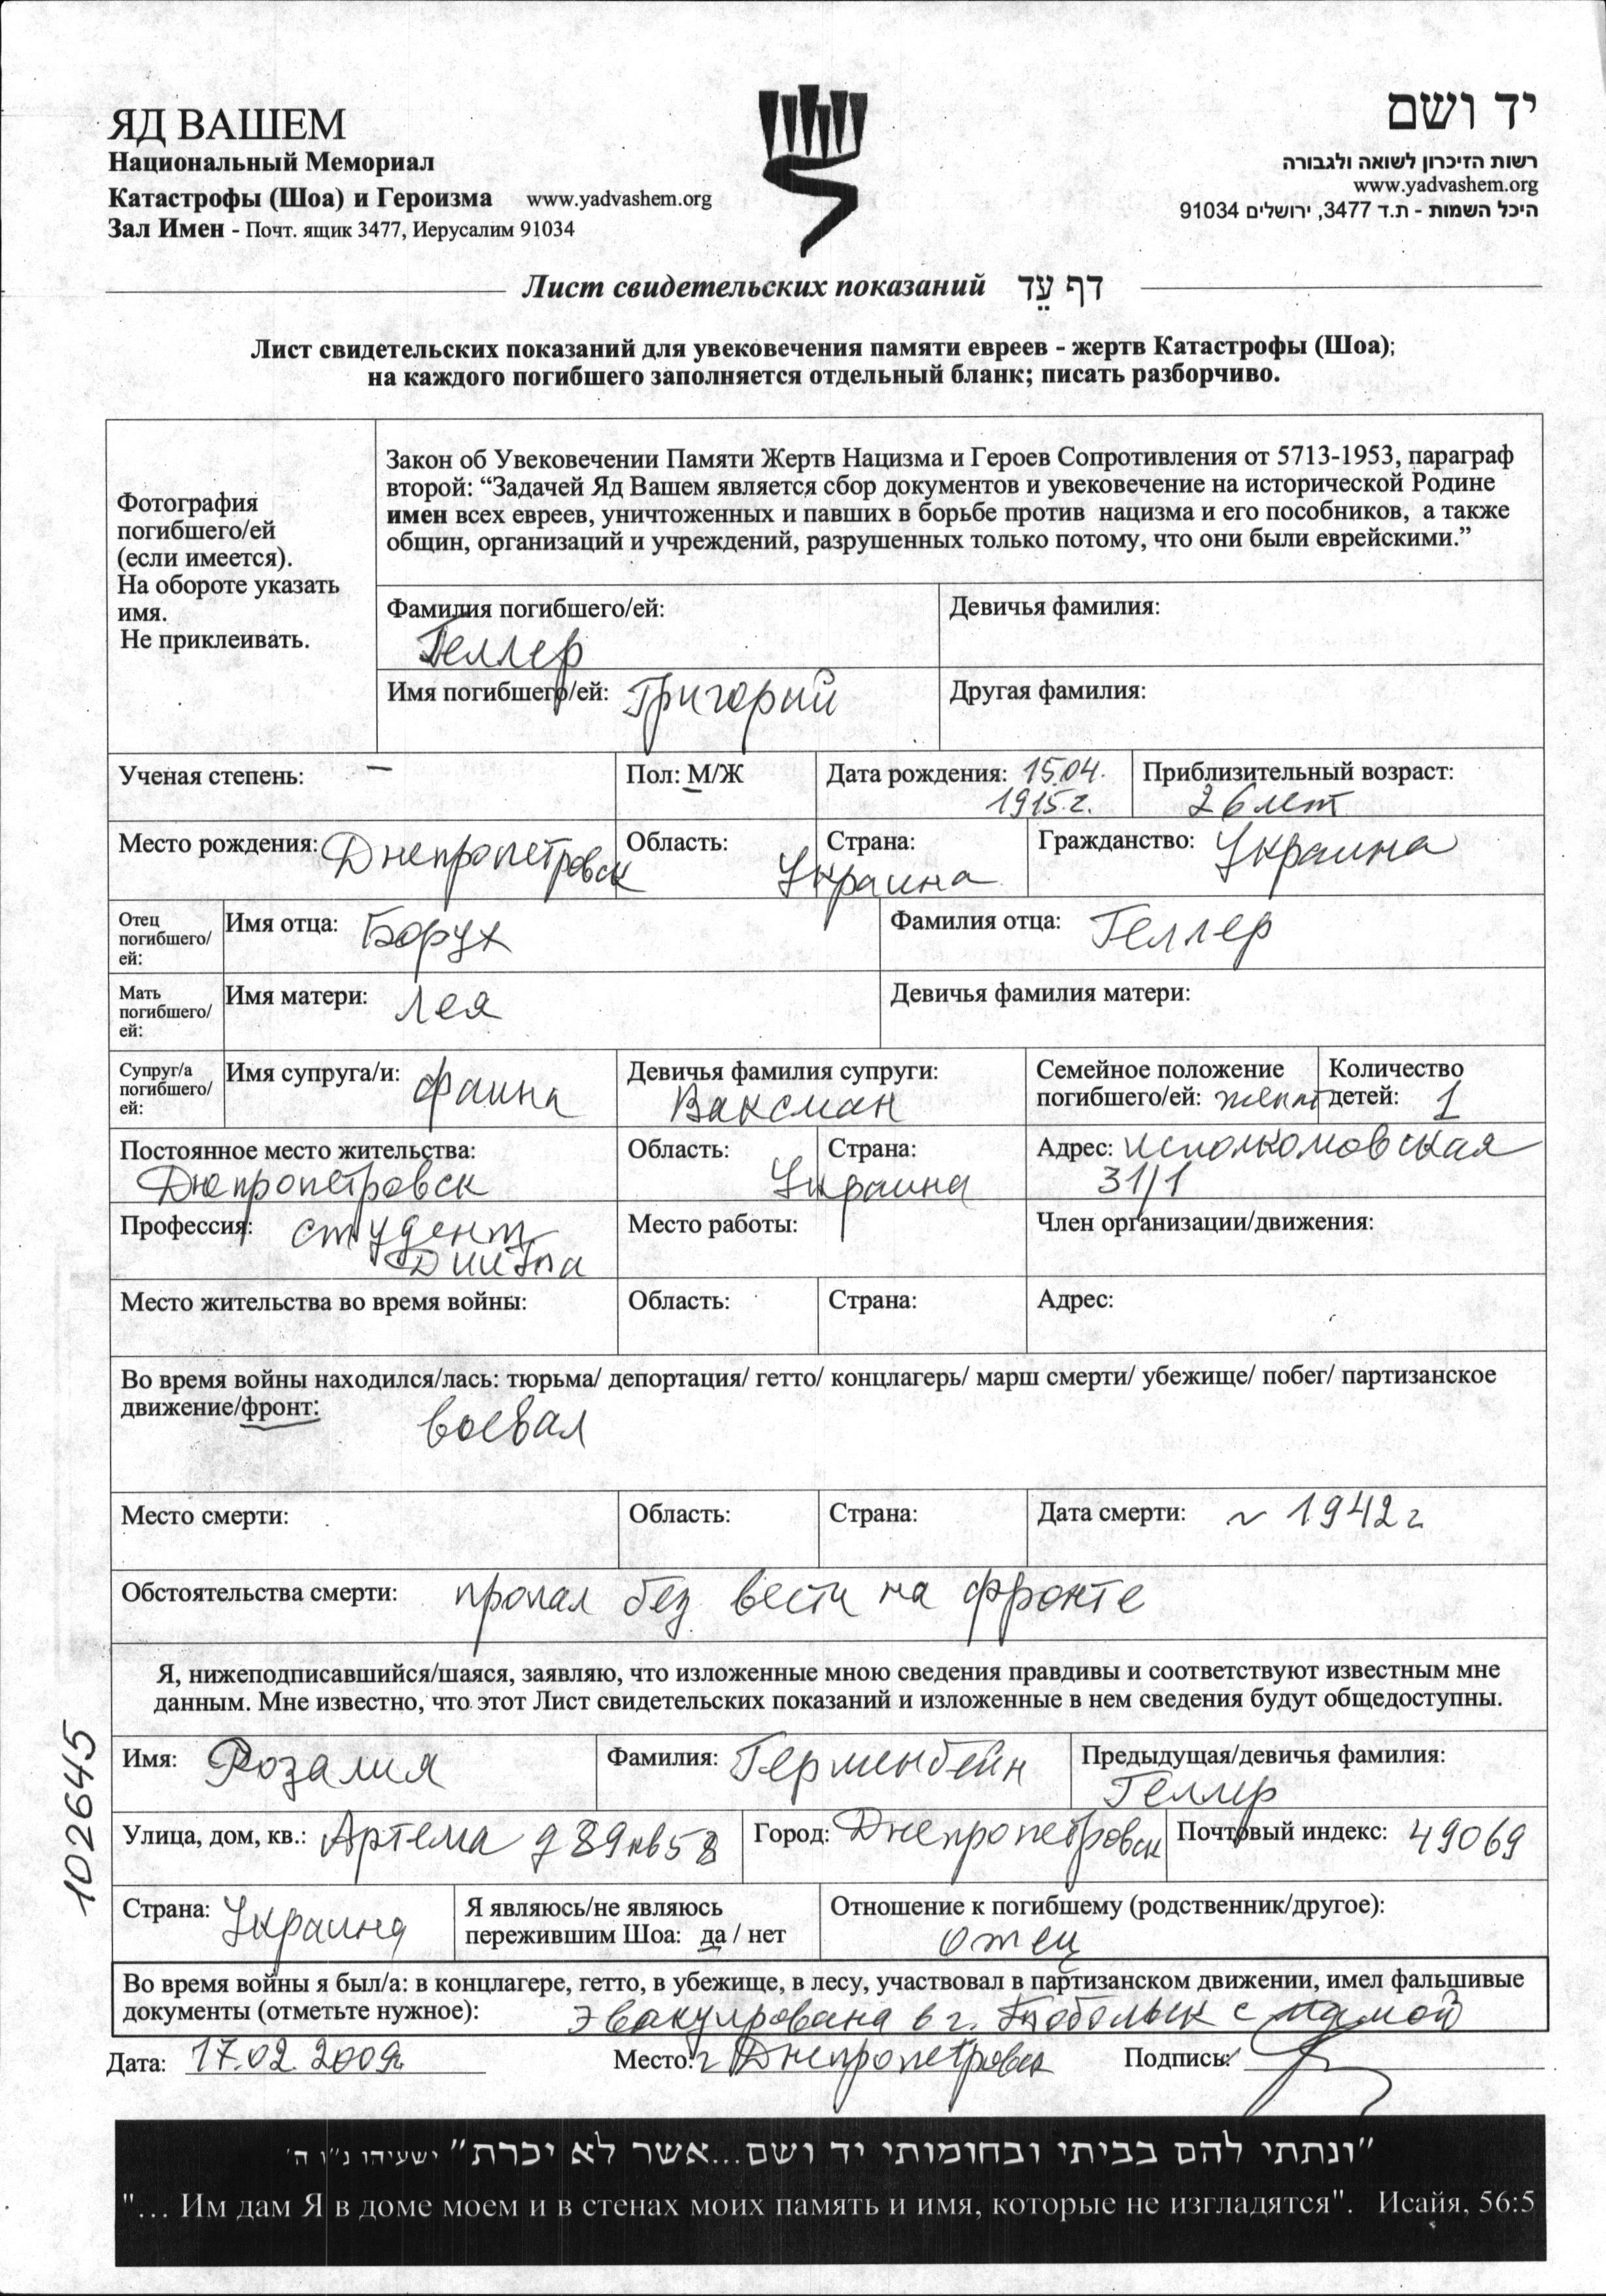 ЯД ВАШЕМ
Национальный Мемориал
Катастрофы (Шоа) и Героизма www.yadvashem.org
Зал Имен - Почт. ящик 3477, Иерусалим 91034
יד ושם
רשות הזיכרון לשואה ולגבורה
www.yadvashem.org
היכל השמות - ת.ד 3477, ירושלים 91034
Лист свидетельских показаний דף עֵד
Лист свидетельских показаний для увековечения памяти евреев - жертв Катастрофы (Шоа);
на каждого погибшего заполняется отдельный бланк; писать разборчиво.
Фотография
погибшего/ей
(если имеется).
На обороте указать
имя.
Не приклеивать.
Закон об Увековечении Памяти Жертв Нацизма и Героев Сопротивления от 5713-1953, параграф
второй: “Задачей Яд Вашем является сбор документов и увековечение на исторической Родине
имен всех евреев, уничтоженных и павших в борьбе против нацизма и его пособников, а также
общин, организаций и учреждений, разрушенных только потому, что они были еврейскими.”
Фамилия погибшего/ей: Девичья фамилия:
Геллер
Имя погибшего/ей: Григорий Другая фамилия:
Ученая степень: — Пол: М/Ж Дата рождения: 15.04. Приблизительный возраст:
1915г. 26 лет
Место рождения: Днепропетровск Область: Страна: Украина Гражданство: Украина
Отец
погибшего/
ей:
Имя отца: Борух Фамилия отца: Геллер
Мать
погибшего/
ей:
Имя матери: Лея Девичья фамилия матери:
Супруг/а
погибшего/
ей:
Имя супруга/и: Фаина Девичья фамилия супруги:
Ваксман
Семейное положение
погибшего/ей: женат
Количество
детей: 1
Постоянное место жительства:
Днепропетровск
Область: Страна:
Украина
Адрес: Исполкомовская
31/1
Профессия: студент Место работы: Член организации/движения:
ДИИТа
Место жительства во время войны: Область: Страна: Адрес:
Во время войны находился/лась: тюрьма/ депортация/ гетто/ концлагерь/ марш смерти/ убежище/ побег/ партизанское
движение/фронт: воевал
Место смерти: Область: Страна: Дата смерти: ~ 1942 г
Обстоятельства смерти: пропал без вести на фронте
Я, нижеподписавшийся/шаяся, заявляю, что изложенные мною сведения правдивы и соответствуют известным мне
данным. Мне известно, что этот Лист свидетельских показаний и изложенные в нем сведения будут общедоступны.
Имя: Розалия Фамилия: Предыдущая/девичья фамилия:
Геллер
Улица, дом, кв.: Артема д 89 кв 58 Город: Днепропетровск Почтовый индекс: 49069
Страна: Украина
Я являюсь/не являюсь
пережившим Шоа: да / нет
Отношение к погибшему (родственник/другое):
отец
Во время войны я был/а: в концлагере, гетто, в убежище, в лесу, участвовал в партизанском движении, имел фальшивые
документы (отметьте нужное): эвакуирована в г. Тобольск с мамой
Дата: 17.02.2009г. Место: г Днепропетровск Подпись:
102645
"ונתתי להם בביתי ובחומותי יד ושם...אשר לא יכרת" ישעיהו נ"ו ה'
"... Им дам Я в доме моем и в стенах моих память и имя, которые не изгладятся". Исайя, 56:5